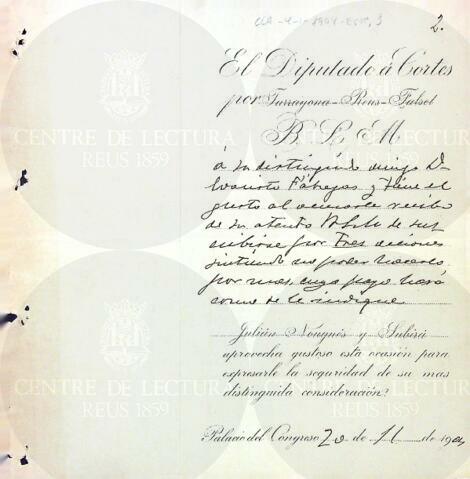 CLA-4-1-1904-Esp., 3
2.
El Diputado á Cortes
por Tarragona-Reus-Falset
B. L. M.
á su distinguido amigo D.
Evaristo Fábregas y tiene el
gusto al acusarle recibo
de su atento B.L.M. de sus
cribirse por tres acciones
sintiendo no poder hacerlo
por mas, cuyo pago hará
como se le indique
Julián Nougués y Subirá
aprovecha gustoso esta ocasión para
expresarle la seguridad de su mas
distinguida consideración.
Palacio del Congreso 20 de 11 de 1904
CENTRE DE LECTURA
REUS 1859
CENTRE DE LECTURA
REUS 1859
CENTRE DE LECTURA
REUS 1859
CENTRE DE LECTURA
REUS 1859